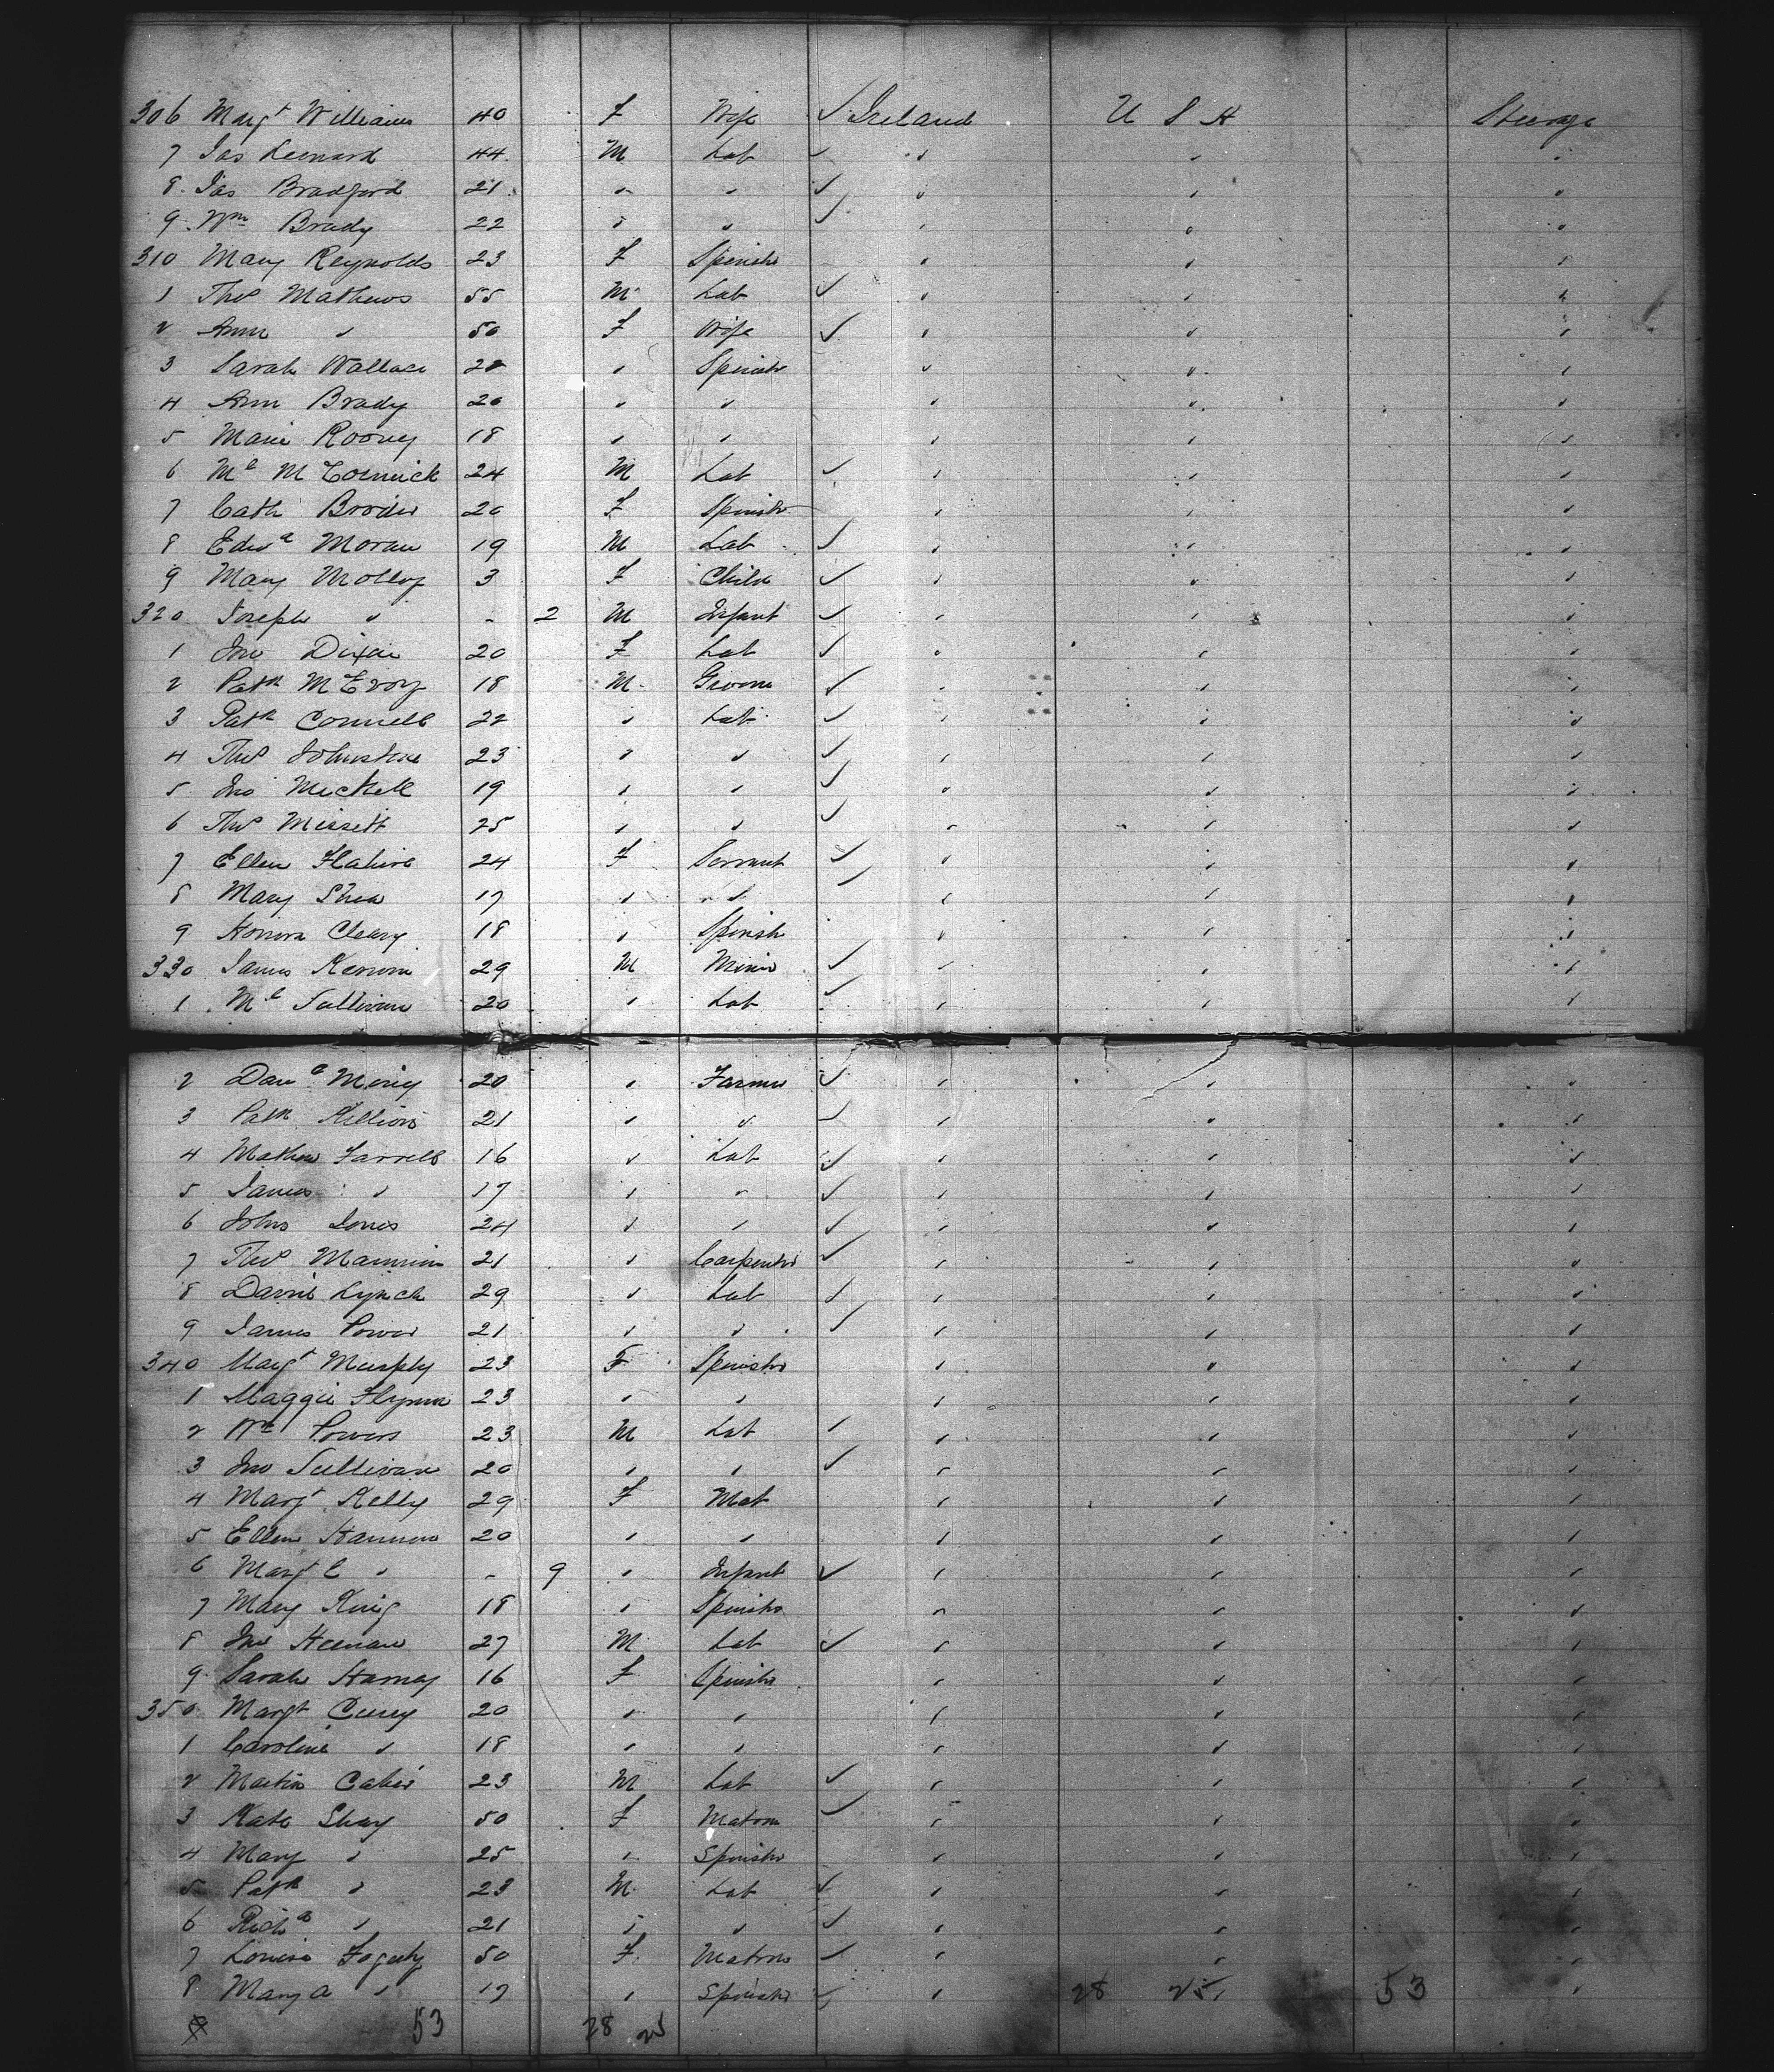 306 Margt Williams 40 F Wife ✓ Ireland U S A Steerage
7 Jas Leonard 44 M Lab ✓ " " "
8 Jas Bradford 21 " " ✓ " " "
9 Wm Brady 22 " " ✓ " " "
310 Mary Reynolds 23 F Spinstr " " "
1 Thos Mathews 55 M Lab ✓ " " "
2 Ann " 50 F Wife ✓ " " "
3 Sarah Wallace " Spinstr " " "
4 Ann Brady 20 " " " " "
5 Marie Rooney 18 " " " " "
6 Ml McCormick 24 M Lab ✓ " " "
7 Cath Broder 20 F Spinstr " " "
8 Edwd Moran 19 M Lab ✓ " " "
9 Mary Molloy 3 F Child ✓ " " "
320 Joseph " - 2 M Infant ✓ " " "
1 Jno Dixon 20 F Lab ✓ " " "
2 Patk McEvoy 18 M Groom ✓ " " "
3 Patk Connell 22 " Lab ✓ " " "
4 Thos Johnstone 23 " " ✓ " " "
5 Jno 19 " " ✓ " " "
6 Thos Missett 25 " " ✓ " " "
7 Ellen 24 F Servant ✓ " " "
8 Mary Shea 17 " " ✓ " " "
9 Honora Cleary 18 " Spinstr " " "
330 James Kerwin 29 M Miner ✓ " " "
1 Ml Sullivan 20 " Lab ✓ " " "
2 Danl 20 " Farmer ✓ " " "
3 Patk Killion 21 " " ✓ " " "
4 Mathew Farrell 16 " Lab ✓ " " "
5 James " 17 " " ✓ " " "
6 John Jones 24 " " ✓ " " "
7 Thos 21 " Carpenter ✓ " " "
8 Lynch 29 " Lab ✓ " " "
9 James Power 21 " " ✓ " " "
340 Margt Murphy 23 F Spinstr " " "
1 Maggie Flynn 23 " " " " "
2 Wm Powers 23 M Lab ✓ " " "
3 Jno Sullivan 20 " " ✓ " " "
4 Margt Kelly 29 F Mat " " "
5 Ellen Hannon 20 " " " " "
6 Margt E " - 9 " Infant ✓ " " "
7 Mary King 18 " Spinstr " " "
8 Jno Heenan 27 M Lab ✓ " " "
9 Sarah 16 F Spinstr " " "
350 Margt 20 " " " " "
1 Caroline " 18 " " " " "
2 Martin 23 M Lab ✓ " " "
3 Kate Shay 50 F Matron ✓ " " "
4 Mary " 25 " Spinstr " " "
5 Patk " 23 M Lab ✓ " " "
6 Richd " 21 " " ✓ " " "
7 Louisa Fogarty 50 F Matron ✓ " " "
8 Mary A " 17 " Spinstr ✓ " 28 25 " 53 "
53 28 25